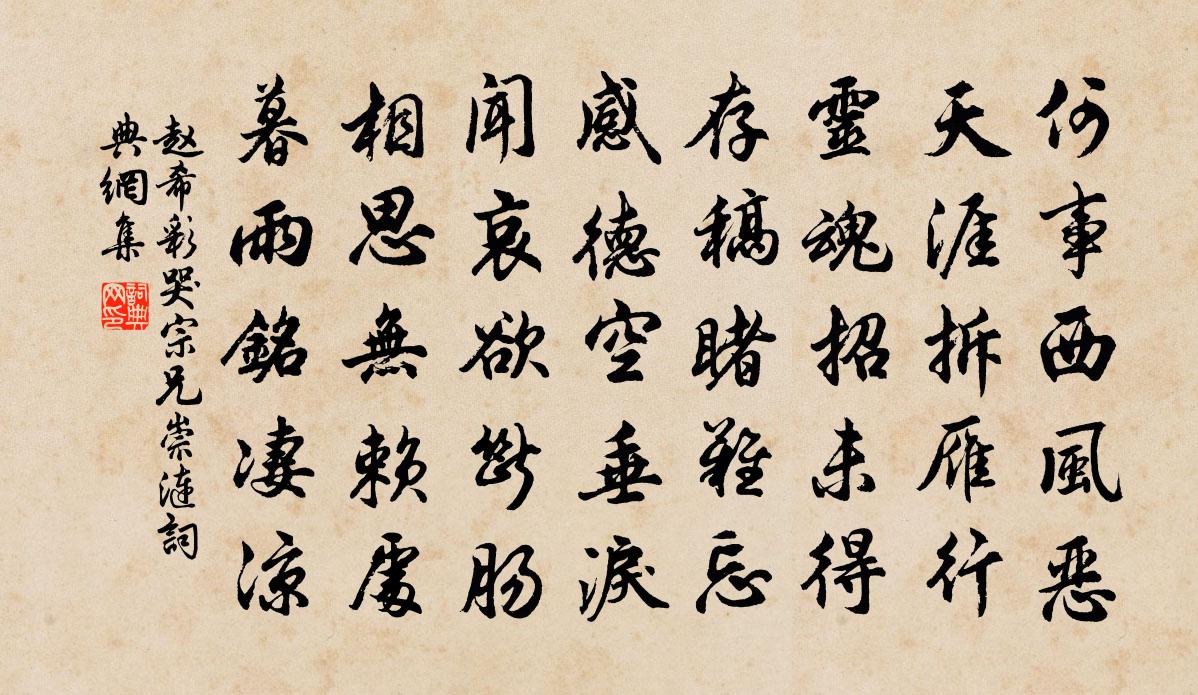 何事西風惡
天涯拆雁行
靈魂招未得
存稿睹難忘
感德空垂淚
聞哀欲斷肠
相思無賴處
暮雨銘凄涼
赵希彩哭宗兄崇漣詞
典網集
詞典网印